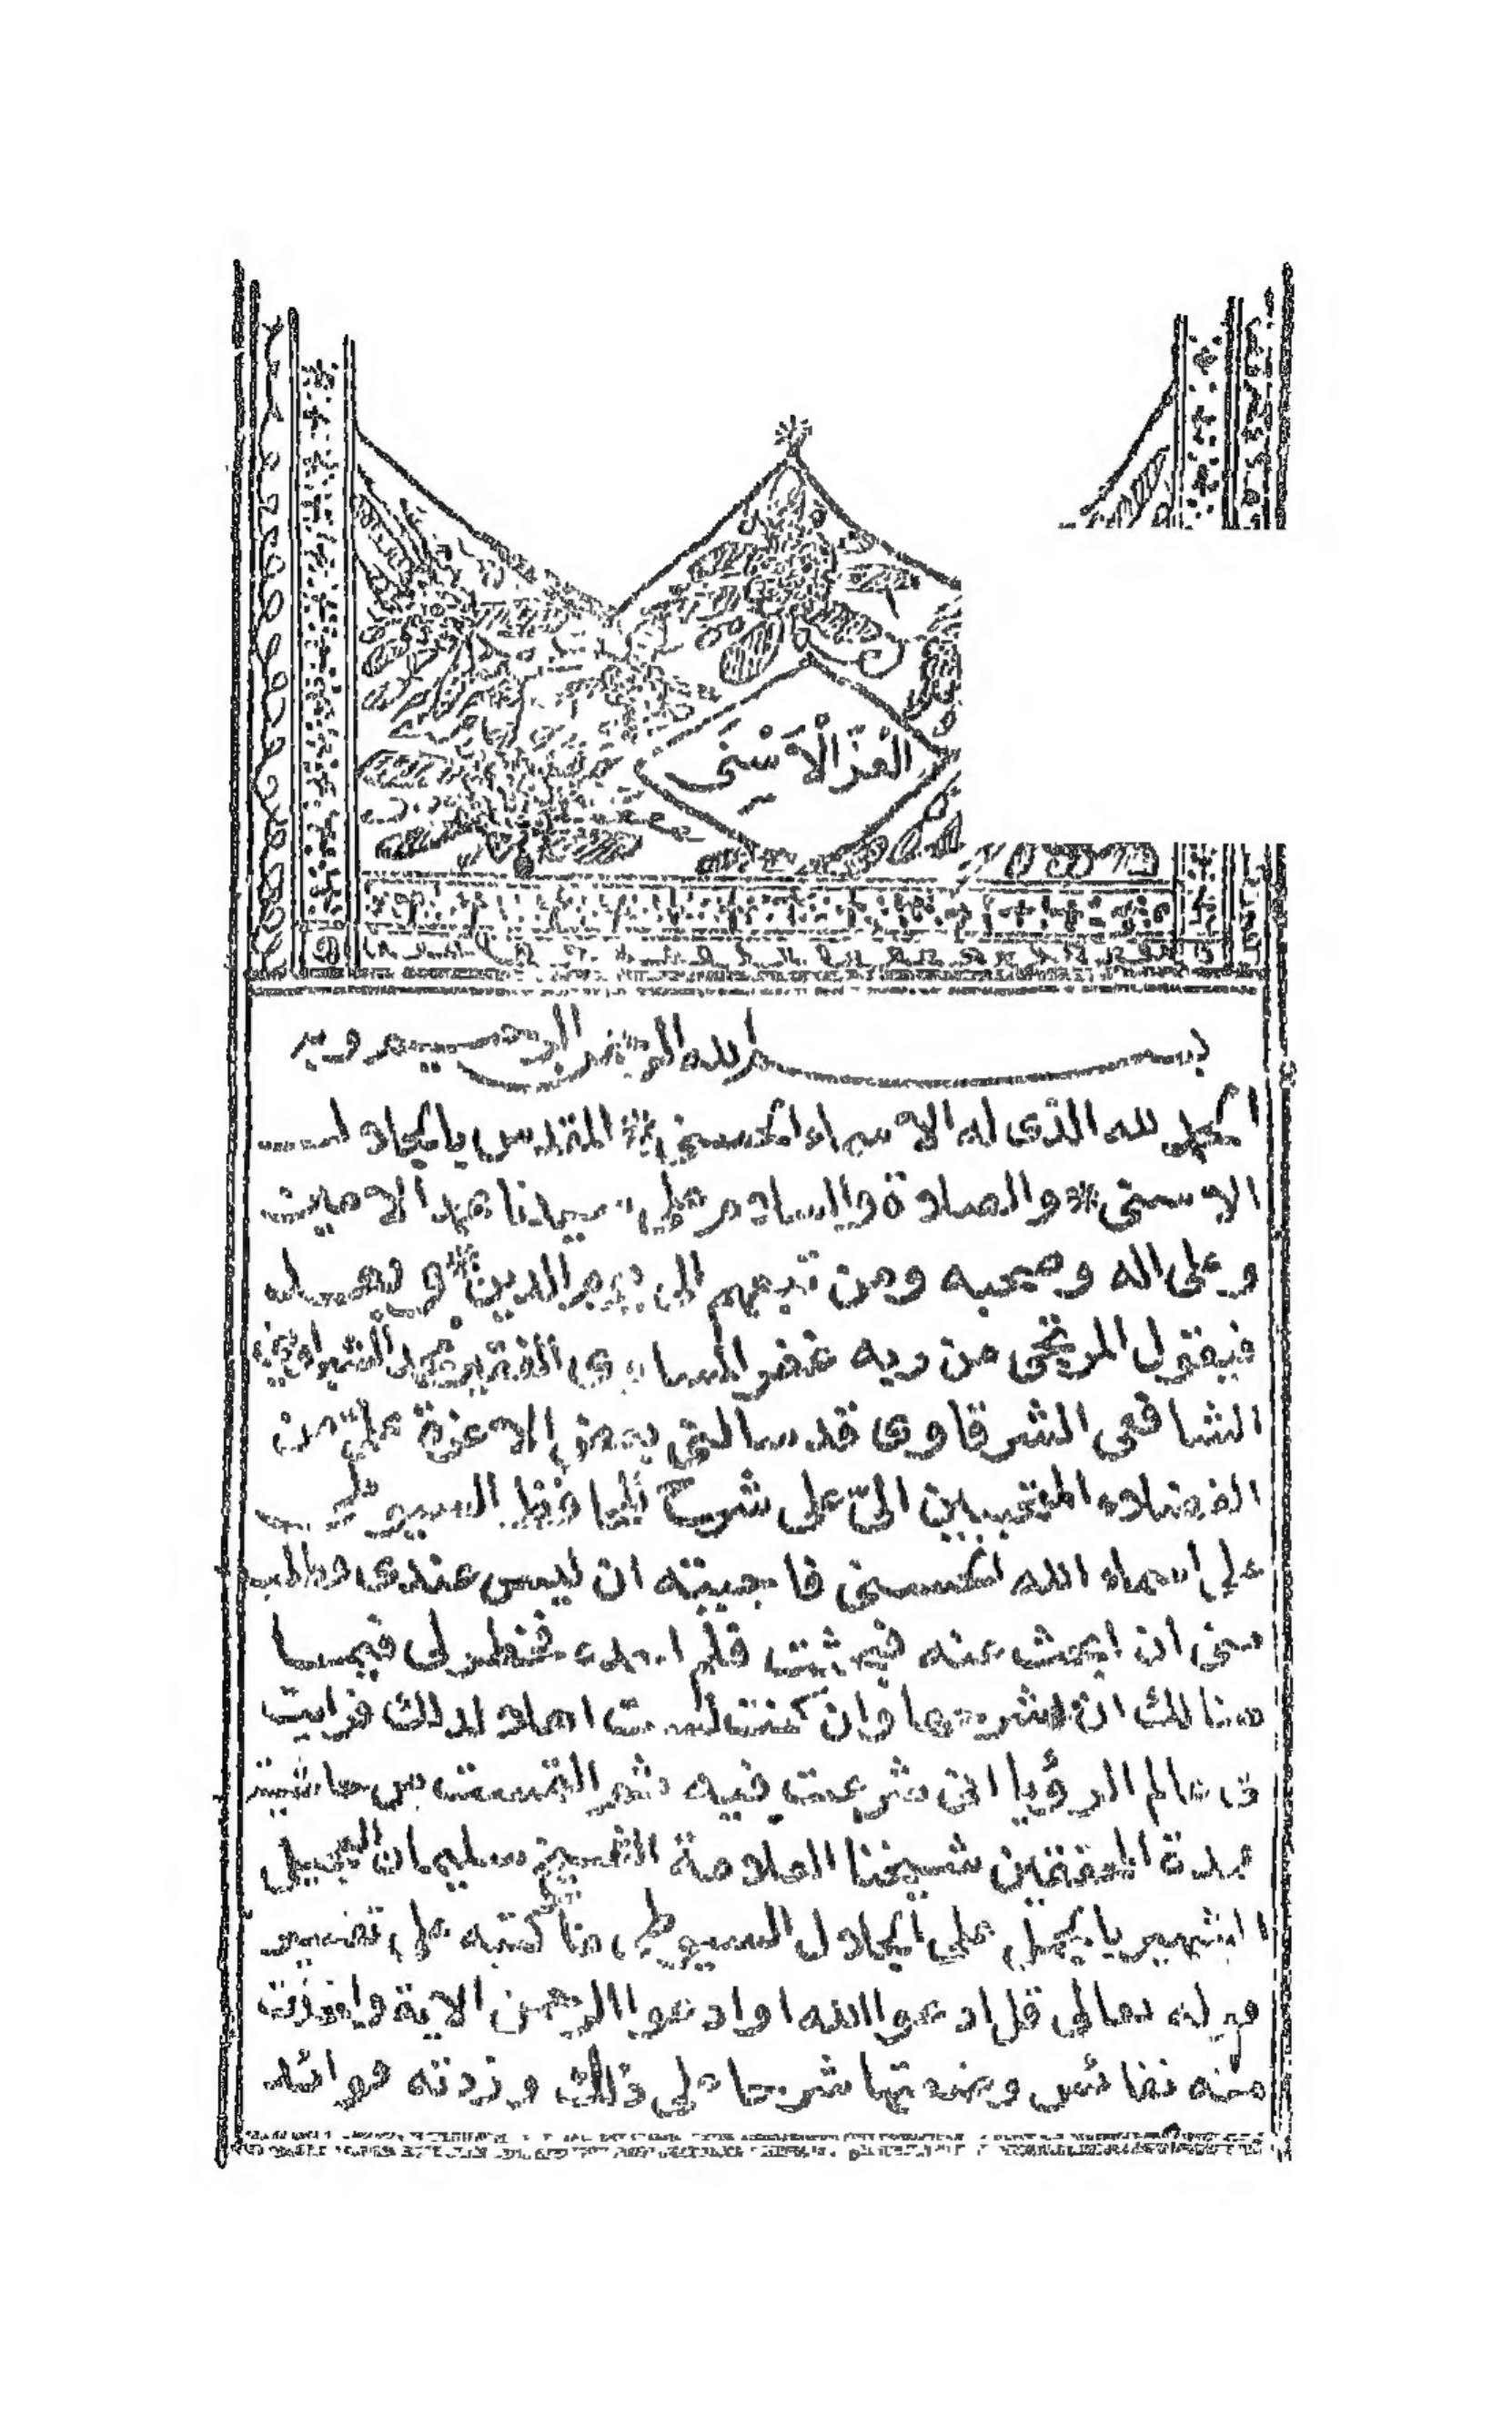 العِزّ الْأَسْنَى
بسم الله الرحمن الرحيم وبه
الحمد لله الذى له الاسماء الحسنى * المقدس بالجلال
الاسنى * والصلاة والسلام على سيدنا محمد الامين
وعلى اله وصحبه ومن تبعهم الى يوم الدين * وبعد
فيقول المرتجى من ربه غفر المساوى الفقير محمد
الشافعى الشرقاوى قد سالنى بعض الاعزة على من
الفضلاء المنتخبين الىّ على شرح للحافظ السيوطى
على اسماء الله الحسنى فاجبته ان ليس عندى فطلب
منى ان ابحث عنه فبحثت فلم اجده فخطر لى فيما
هنالك ان اشرحها وان كنت لست اهلا لذلك فرايت
فى عالم الرؤيا انى شرعت فيه ثم التمست من حاشية
عمدة المحققين شيخنا العلامة الشيخ سليمان
الشهير بالجمل على الجلال السيوطى ما كتبه على تفسير
قوله تعالى قل ادعوا الله او ادعوا الرحمن الاية واخذت
منه نفائس وضمنتها شرحا على ذلك وزدته فوائد